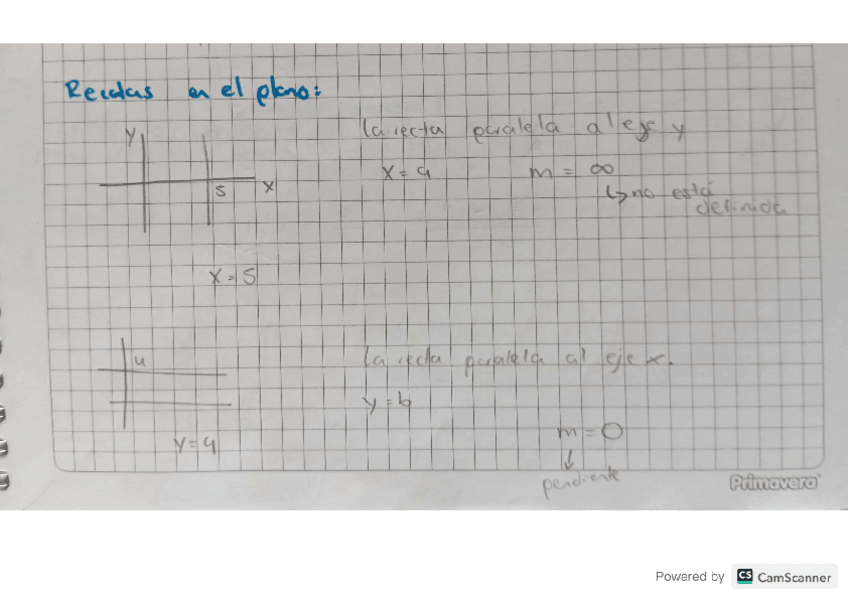 Rectas en el plano:
y
5 x
x = 5
La recta paralela al eje y
x = a m = ∞
↳ no está
definida
4
y = 4
La recta paralela al eje x.
y = b
m = 0
↓
pendiente
Primavera
Powered by CS CamScanner